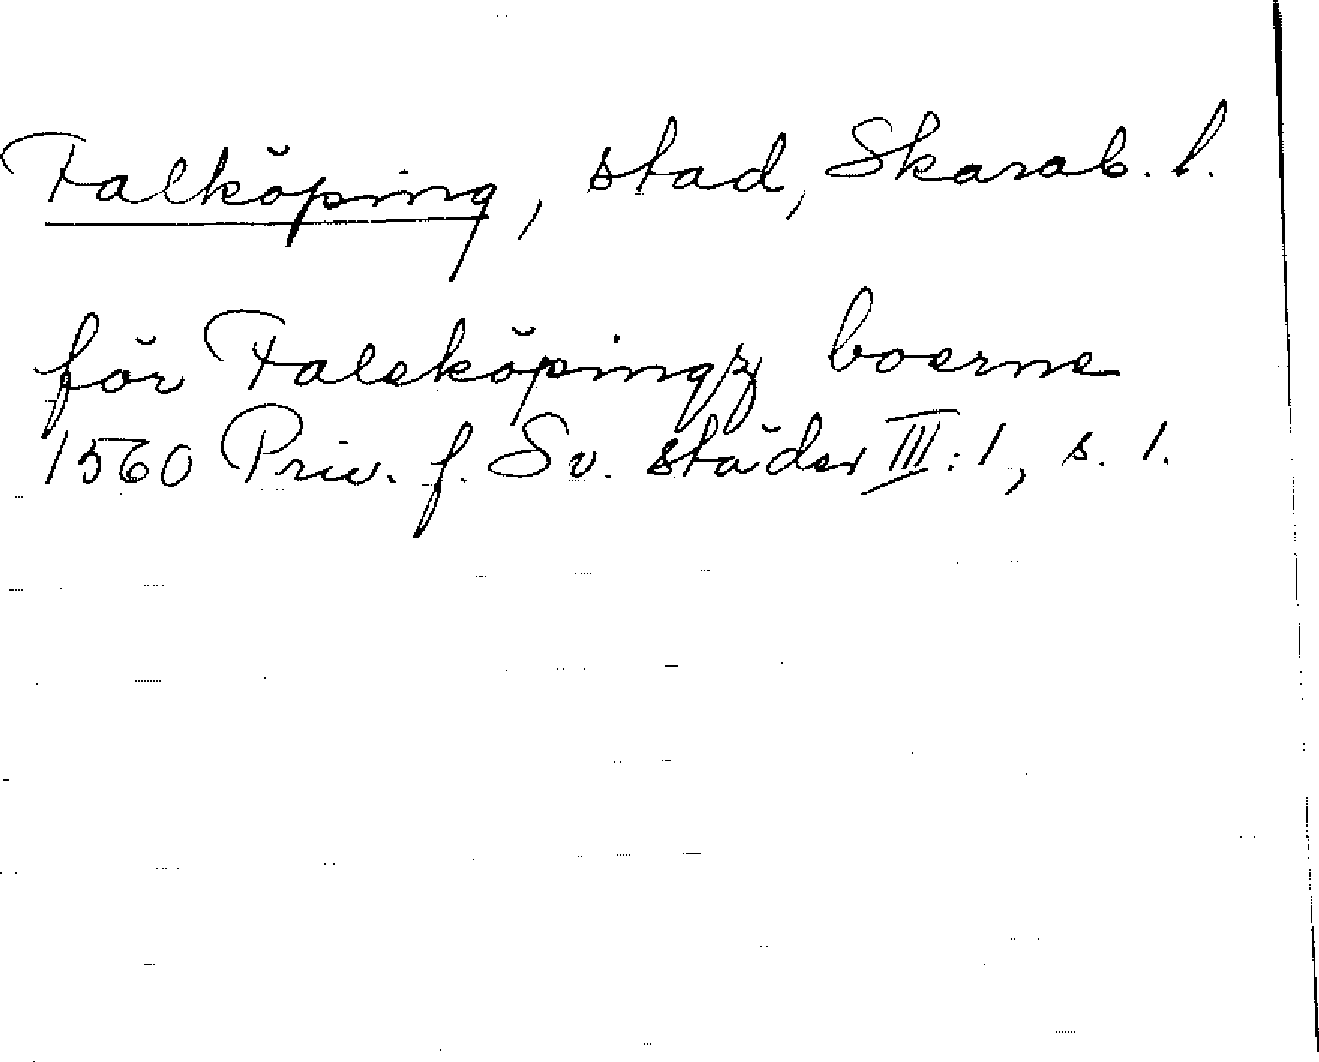 Falköping, stad, Skarab. l.
för Faleköpingz boerne
1560 Priv. f. Sv. städer III:1, s. 1.